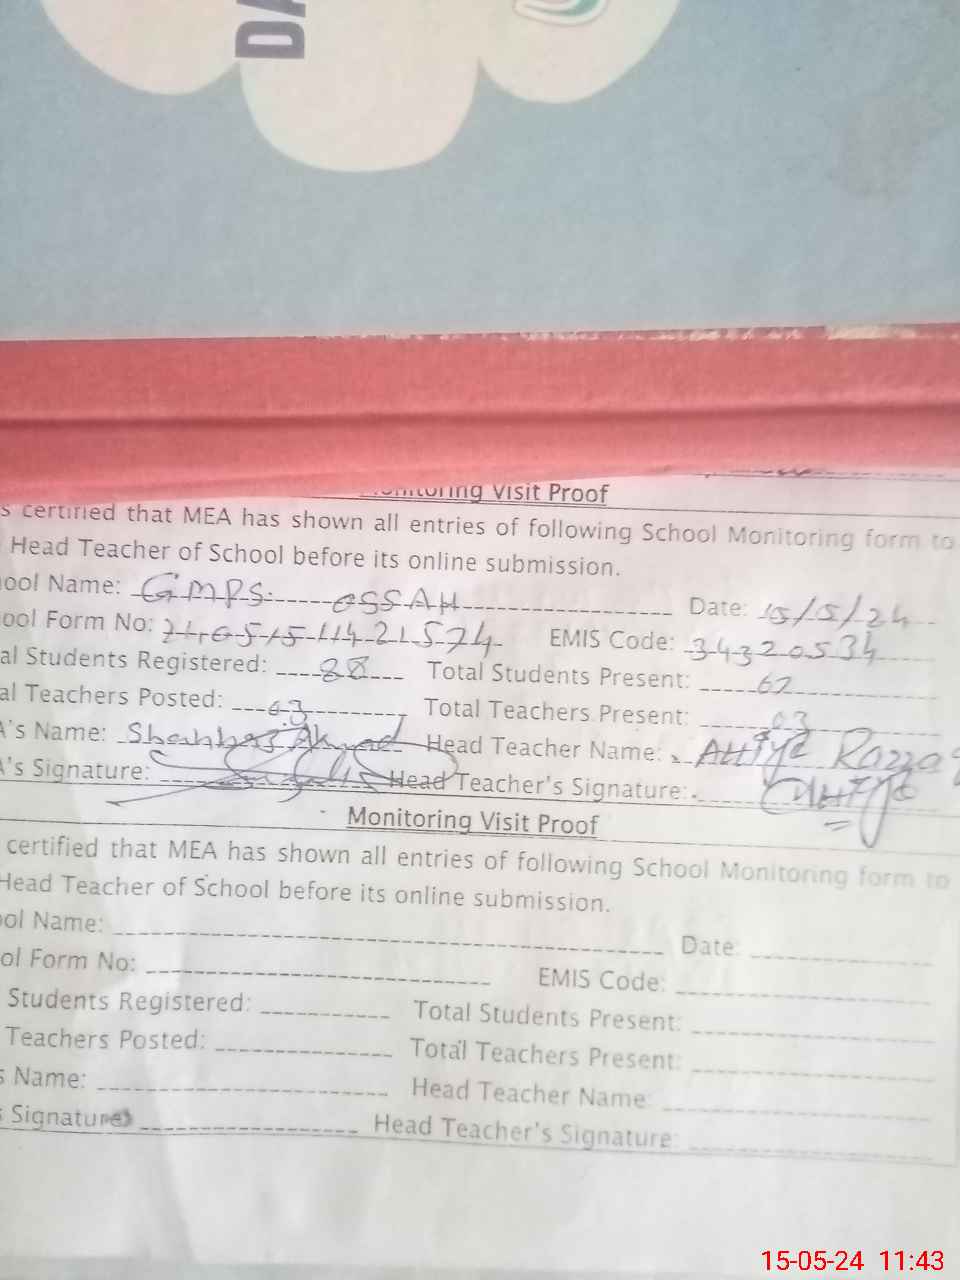 DA
Monitoring Visit Proof
s certified that MEA has shown all entries of following School Monitoring form to
Head Teacher of School before its online submission.
ool Name: GMPS OSSAH Date: 15/5/24
ool Form No: EMIS Code: 34320534
al Students Registered: 88 Total Students Present: 62
al Teachers Posted: 03 Total Teachers Present: 03
A's Name: Shahbaz Ahmad Head Teacher Name: Attiya Razzaq
A's Signature: Head Teacher's Signature:
Monitoring Visit Proof
certified that MEA has shown all entries of following School Monitoring form to
Head Teacher of School before its online submission.
ool Name: Date:
ol Form No: EMIS Code:
Students Registered: Total Students Present:
Teachers Posted: Total Teachers Present:
s Name: Head Teacher Name:
s Signature: Head Teacher's Signature:
15-05-24 11:43